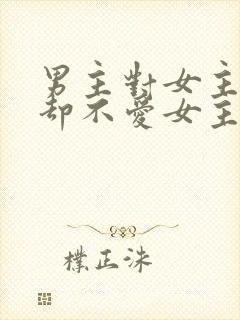 男主對女主
却不愛女主
樸正洙